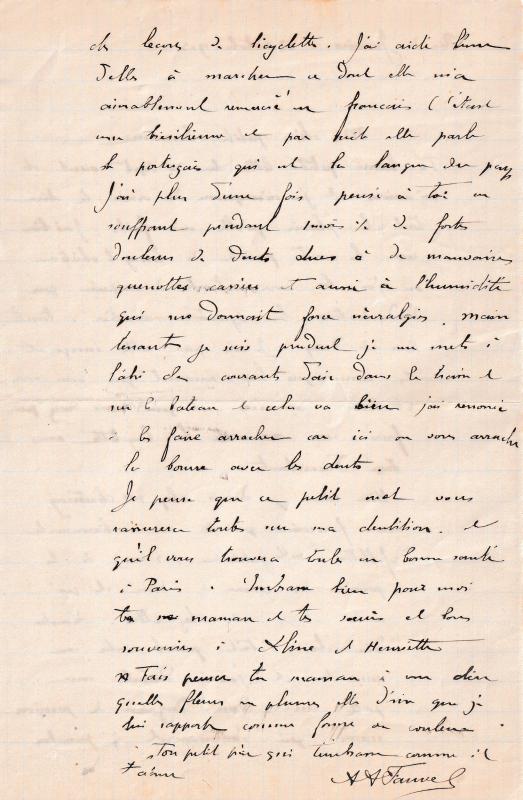 des leçons de bicyclette. J'ai aidé l'une
d'elles à marcher ce dont elle m'a
aimablement remercié en français C'était
une brésilienne et par suite elle parle
le portugais qui est la langue du pays
J'ai plus d'une fois pensé à toi en
souffrant pendant 1 mois ½ de fortes
douleurs de dents dues à de mauvaises
quenottes cariées et aussi à l'humidité
qui me donnait force névralgies. Main
tenant je suis prudent je me mets à
l'abri des courants d'air dans le train et
sur le bateau et cela va bien j'ai renoncé
à les faire arracher car ici on vous arrache
la bourse avec les dents.
Je pense que ce petit mot vous
rassurera toutes sur ma dentition. et
qu'il vous trouvera toutes en bonne santé
à Paris. Embrasse bien pour moi
ta maman et tes sœurs et bons
souvenirs à Aline et Henriette
Fais penser ta maman à me dire
quelles fleurs en plumes elle désire que je
lui rapporte comme forme et couleur.
ton petit père qui t'embrasse comme il
t'aime
A A Fauvel